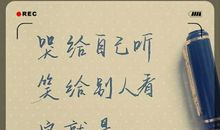 REC
哭给自己听
笑给别人看
这就是